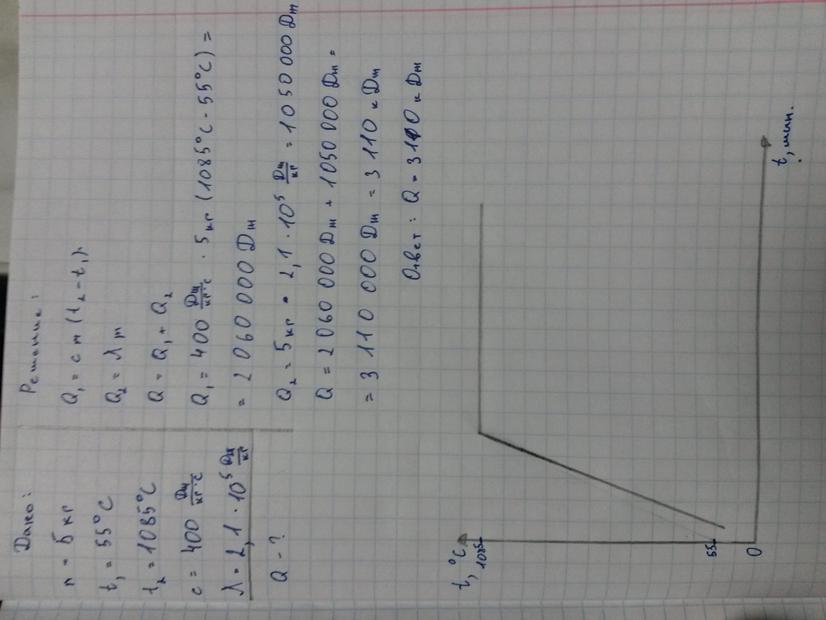 Дано:
m = 5 кг
t₁ = 55°C
t₂ = 1085°C
c = 400 Дж/кг·°C
λ = 2,1 · 10⁵ Дж/кг
Q - ?
Решение:
Q₁ = cm(t₂-t₁)
Q₂ = λm
Q = Q₁ + Q₂
Q₁ = 400 Дж/кг·°C · 5 кг (1085°C - 55°C) =
= 2060 000 Дж
Q₂ = 5 кг · 2,1 · 10⁵ Дж/кг = 1050 000 Дж
Q = 2060 000 Дж + 1050 000 Дж =
= 3 110 000 Дж = 3110 кДж
Ответ: Q = 3110 кДж
t, °C
1085
55
0
t, мин.